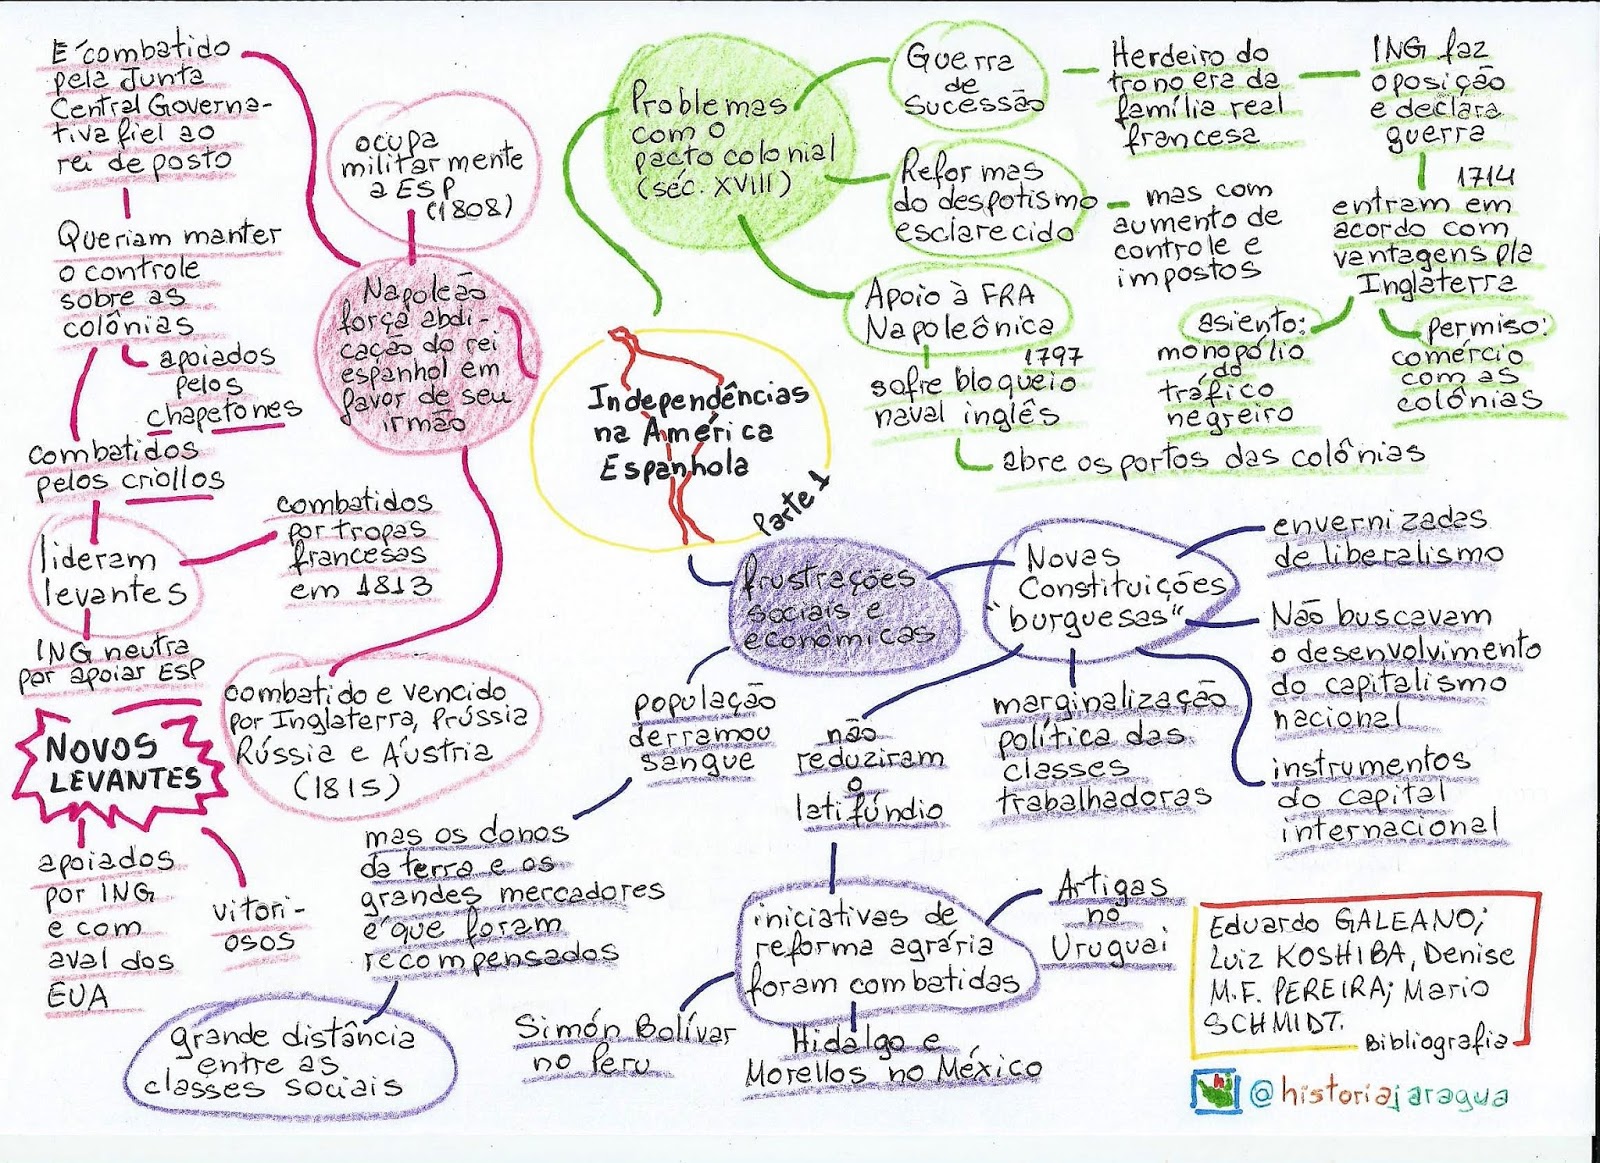 Independências
na América
Espanhola
Parte 1
Problemas
com o
pacto colonial
(séc. XVIII)
Guerra
de
Sucessão
Herdeiro do
trono era da
família real
francesa
ING faz
oposição
e declara
guerra
1714
entram em
acordo com
vantagens p/a
Inglaterra
asiento:
monopólio
do
tráfico
negreiro
permiso:
comércio
com as
colônias
Reformas
do despotismo
esclarecido
mas com
aumento de
controle e
impostos
Apoio à FRA
Napoleônica
1797
sofre bloqueio
naval inglês
abre os portos das colônias
Napoleão
força abdi-
cação do rei
espanhol em
favor de seu
irmão
ocupa
militarmente
a ESP
(1808)
E combatido
pela Junta
Central Governa-
tiva fiel ao
rei deposto
Queriam manter
o controle
sobre as
colônias
apoiados
pelos
chapetones
combatidos
pelos criollos
lideram
levantes
combatidos
por tropas
francesas
em 1813
ING neutra
por apoiar ESP
combatido e vencido
por Inglaterra, Prússia
Rússia e Áustria
(1815)
NOVOS
LEVANTES
apoiados
por ING
e com
aval dos
EUA
vitori-
osos
frustrações
sociais e
econômicas
população
derramou
sangue
mas os donos
da terra e os
grandes mercadores
é que foram
recompensados
grande distância
entre as
classes sociais
Novas
Constituições
"burguesas"
envernizadas
de liberalismo
Não buscavam
o desenvolvimento
do capitalismo
nacional
instrumentos
do capital
internacional
marginalização
política das
classes
trabalhadoras
não
reduziram
o
latifúndio
iniciativas de
reforma agrária
foram combatidas
Artigas
no
Uruguai
Simón Bolívar
no Peru
Hidalgo e
Morellos no México
Eduardo GALEANO;
Luiz KOSHIBA, Denise
M.F. PEREIRA; Mario
SCHMIDT.
Bibliografia
hj
@historiajaragua